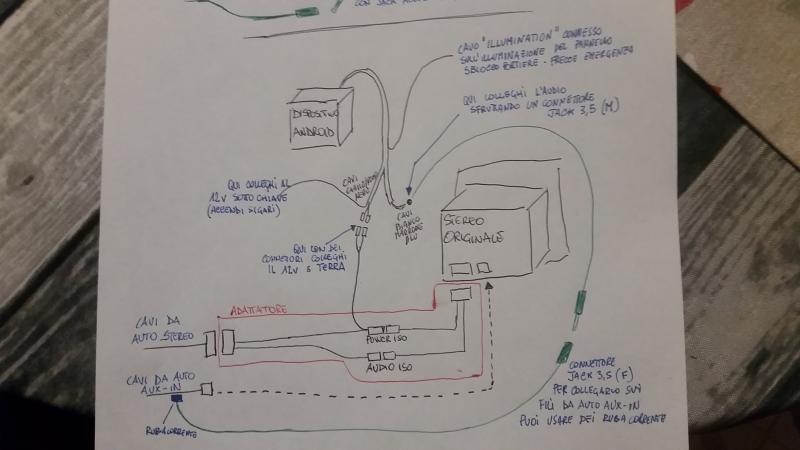 CON JACK
CAVO "ILLUMINATION" CONNESSO
SULL'ILLUMINAZIONE DEL PANNELLO
SBLOCCO PORTIERE - FRECCE EMERGENZA
DISPOSITIVO
ANDROID
QUI COLLEGHI L'AUDIO
SFRUTTANDO UN CONNETTORE
JACK 3,5 (M)
QUI COLLEGHI AL
12V SOTTO CHIAVE
(ACCENDI SIGARI)
CAVI
NERI
CAVI
BIANCO
MARRONE
BLU
STEREO
ORIGINALE
QUI CON DEI
CONNETTORI COLLEGHI
IL 12V E TERRA
ADATTATORE
CAVI DA
AUTO STEREO
POWER ISO
AUDIO ISO
CAVI DA AUTO
AUX-IN
RUBACORRENTE
CONNETTORE
JACK 3,5 (F)
PER COLLEGARLO SUI
FILI DA AUTO AUX-IN
PUOI USARE DEI RUBACORRENTE